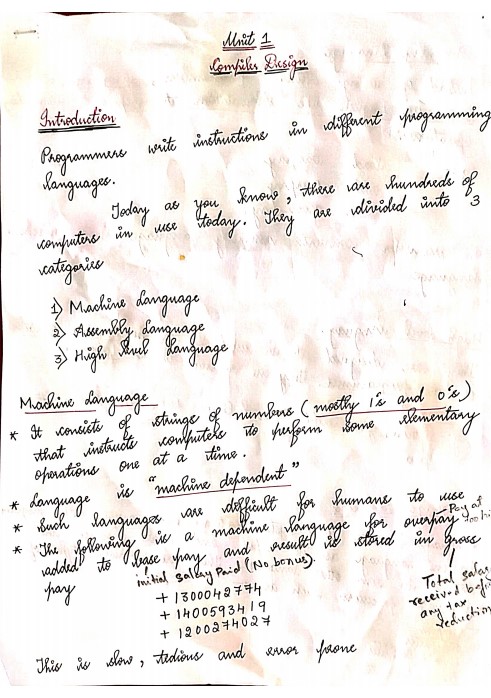 Unit 1
Compiler Design
Introduction
Programmers write instructions in different programming
languages.
Today as you know, there are hundreds of
computers in use today. They are divided into 3
categories
1) Machine Language
2) Assembly Language
3) High level Language
Machine Language
* It consists of strings of numbers (mostly 1's and 0's)
that instructs computers to perform some elementary
operations one at a time.
* Language is "machine dependent"
* Such languages are difficult for humans to use
* The following is a machine language for overpay
Pay at
added to base pay and result is stored in gross
pay
initial Salary Paid (No bonus).
+ 1300042774
+ 1400593419
+ 1200274027
Total
received
any tax
reduction
This is slow, tedious and error prone